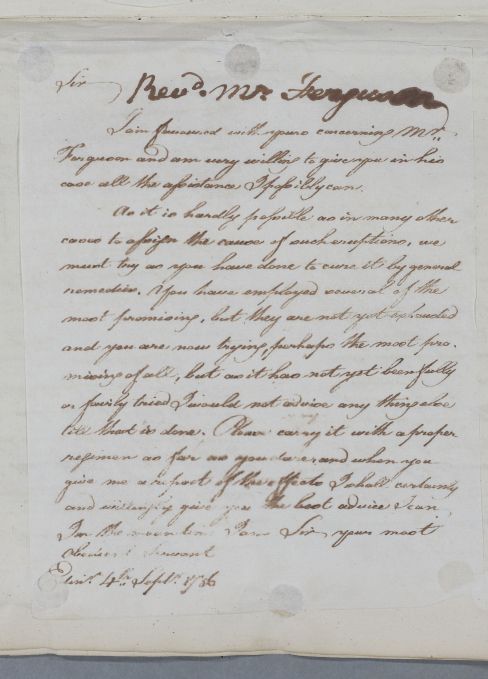 Sir
Revd. Mr. Ferguson
I am favoured with yours concerning Mr.
Ferguson and am very willing to give you in his
case all the assistance I possibly can.
As it is hardly possible as in many other
cases to assign the cause of such eruptions, we
must try as you have done to cure it by general
remedies. You have employed several of the
most promising, but they are not yet exhausted
and you are now trying, perhaps the most pro-
mising of all, but as it has not yet been fully
or fairly tried I would not advise any thing else
till that is done. Please carry it with a proper
regimen as far as you dare and when you
give me a report of the effects I shall certainly
and willingly give you the best advice I can
In the mean time I am Sir your most
obedient Servant
Edinr. 4th. Septr. 1786